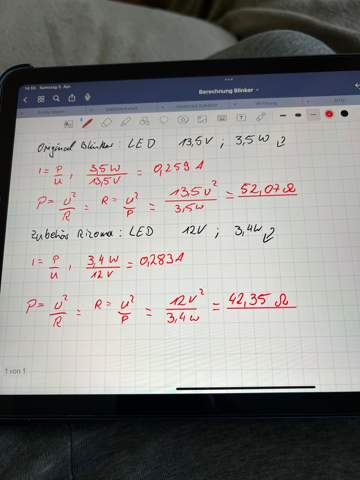 14:55 Samstag 5. Apr.
Berechnung Blinker
Original Blinker: LED 13,5V ; 3,5W
I = P/U , 3,5W/13,5V = 0,259 A
P = U²/R = R = U²/P = 13,5V²/3,5W = 52,07 Ω
Zubehör Rizoma: LED 12V ; 3,4W
I = P/U , 3,4W/12V = 0,283A
P = U²/R = R = U²/P = 12V²/3,4W = 42,35 Ω
1 von 1